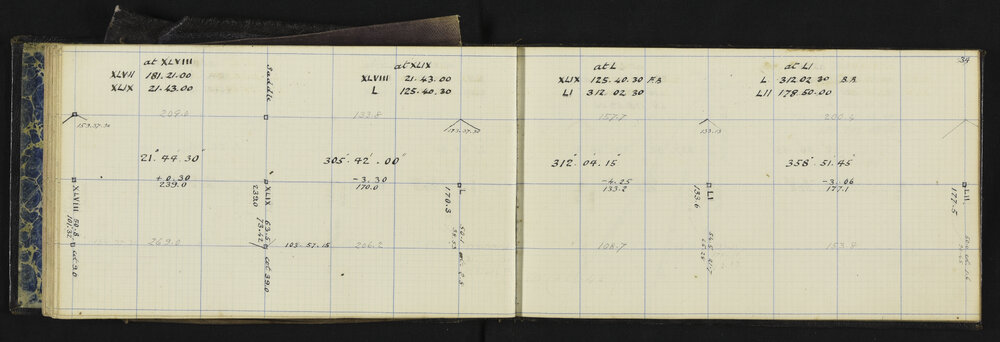 34
at XLVIII
XLVII 181.21.00
XLIX 21.43.00
Saddle
at XLIX
XLVIII 21.43.00
L 125.40.30
at L
XLIX 125.40.30 F.B
LI 312.02.30
at LI
L 312 02 30 B.B.
LII 178.50.00
209.0
133.8
157.7
200.4
159.37.30
21° 44' 30"
305° 42' 00"
312° 04' 15"
358° 51' 45"
+0.30
239.0
-3.30
170.0
-4.25
133.2
-3.06
177.1
XLVIII
XLIX
239.0
L
170.3
LI
133.6
LII
177.5
50.8
cut 3.0
63.5
73.42
cut 39.0
269.0
103.57.15
206.2
108.7
153.8